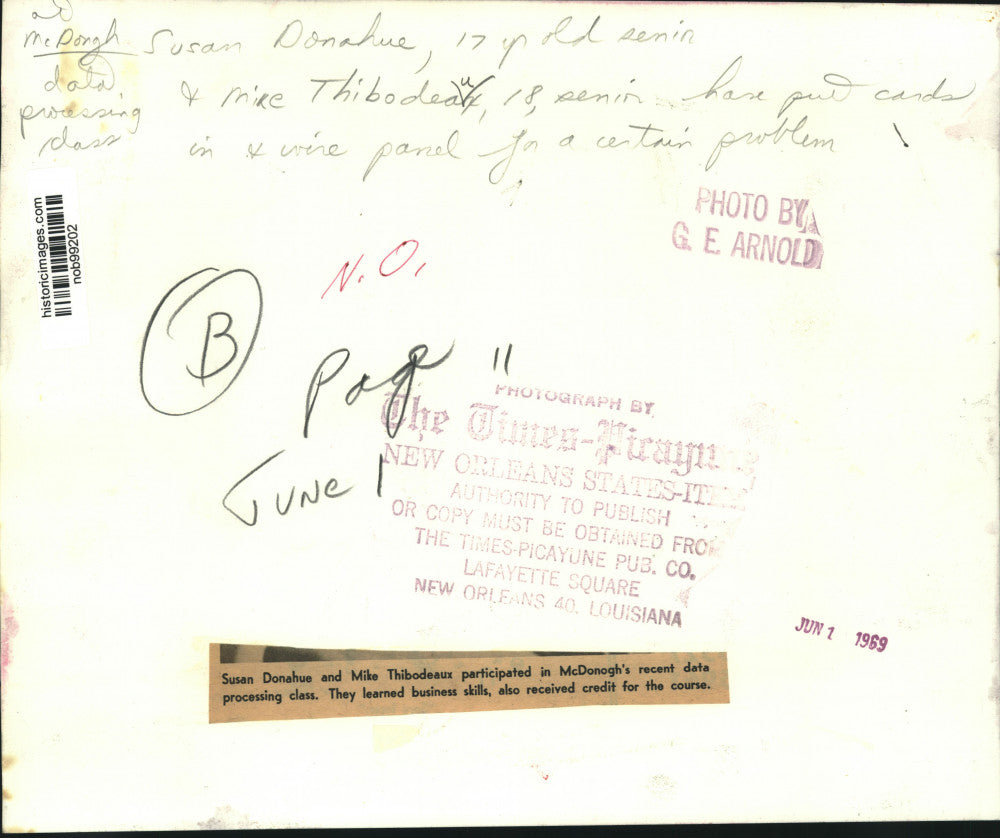 at
McDongh Susan Donahue, 17 yr old senior
data & Mike Thibodeaux, 18, senior have put cards
processing
class in & wire panel for a certain problem
historicimages.com
nob99202
PHOTO BY
G. E. ARNOLD
N.O.
B
Page 11
June 1
PHOTOGRAPH BY
The Times-Picayune
NEW ORLEANS STATES-ITEM
AUTHORITY TO PUBLISH
OR COPY MUST BE OBTAINED FROM
THE TIMES-PICAYUNE PUB. CO.
LAFAYETTE SQUARE
NEW ORLEANS 40, LOUISIANA
JUN 1 1969
Susan Donahue and Mike Thibodeaux participated in McDonogh's recent data
processing class. They learned business skills, also received credit for the course.